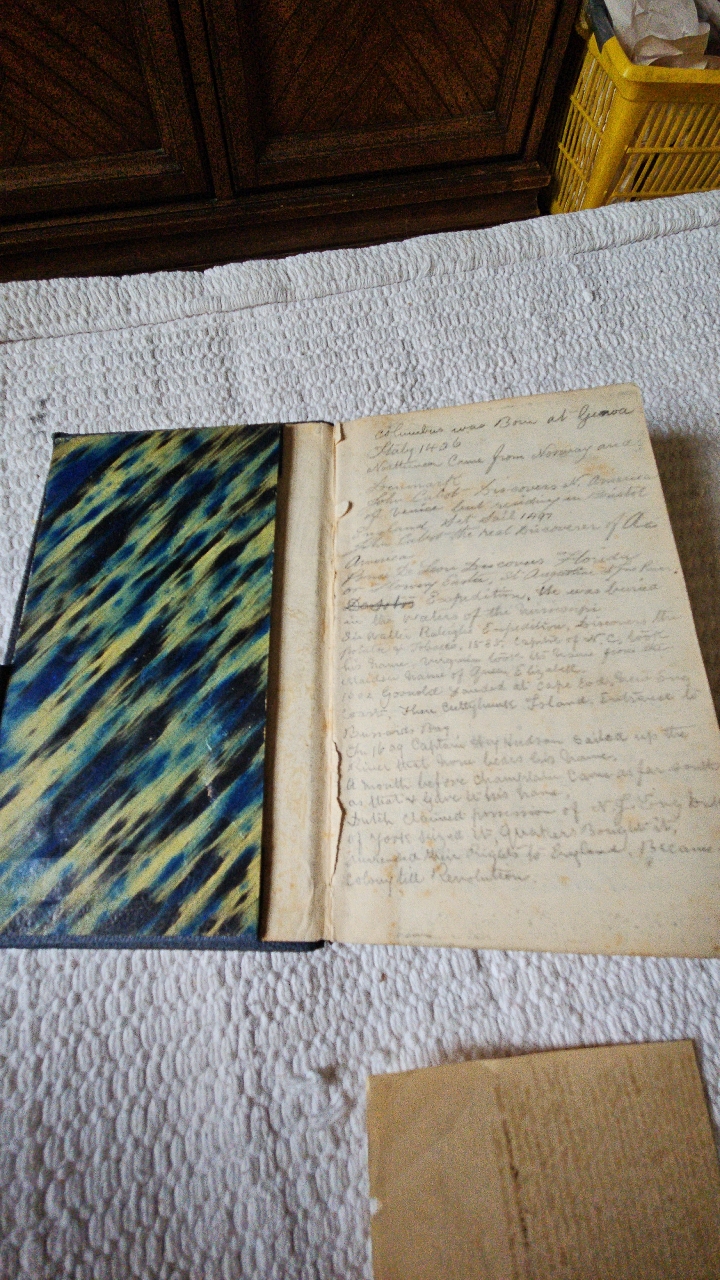 Columbus was Born at Genoa
Italy 1426
Northmen Came from Norway and
Denmark
John Cabot Discovers N. America
of Venice but residing in Bristol
England, Set Sail 1497
John Cabot the real Discoverer of
America
Ponce De Leon Discovers Florida
St Augustine
Expedition, He was buried
in the waters of the Mississippi
Sir Walter Raleighs Expedition, Discovers the
Potato & Tobacco, 1585, Capital of N.C. took
his name. Virginia took its name from the
Maiden name of Queen Elizabeth.
1602 Gosnold Landed at Cape Cod, New Eng
Coast, Then Cuttyhunk Island, Entrance to
Buzzards Bay
In 1609 Captain Hudson Sailed up the
River that now bears his name.
A month before Champlain Came as far south
as that & Gave it his name.
Dutch claimed possession of N.J.
of York seized it, Quakers Bought it,
their Rights to England, Became
Colony till Revolution.